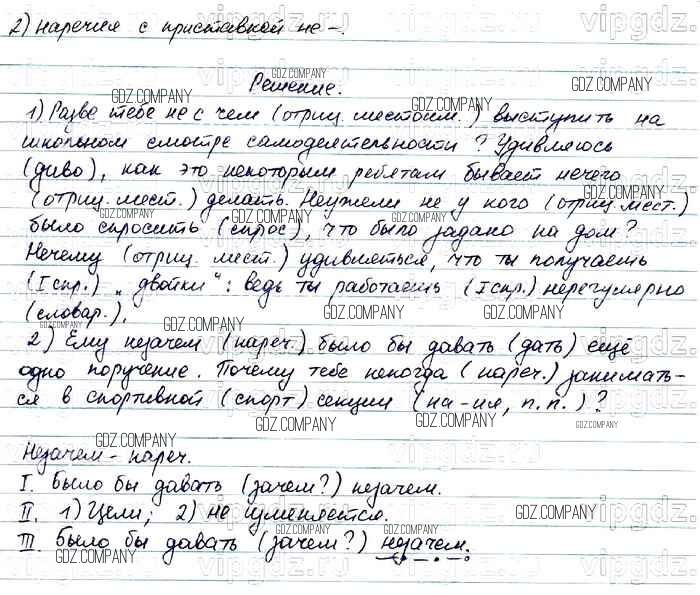 2) наречия с приставкой не-.
Решение.
1) Разве тебе не с чем (отриц. местоим.) выступить на
школьном смотре самодеятельности? Удивляюсь
(диво), как это некоторым ребятам бывает нечего
(отриц. мест.) делать. Неужели не у кого (отриц. мест.)
было спросить (спрос), что было задано на дом?
Нечему (отриц. мест.) удивляться, что ты получаешь
(I спр.) „двойки“: ведь ты работаешь (I спр.) нерегулярно
(словар.).
2) Ему незачем (нареч.) было бы давать (дать) ещё
одно поручение. Почему тебе некогда (нареч.) занимать-
ся в спортивной (спорт) секции (на -ия, п.п.)?
Незачем - нареч.
I. Было бы давать (зачем?) незачем.
II. 1) Цели; 2) не изменяется.
III. Было бы давать (зачем?) незачем.